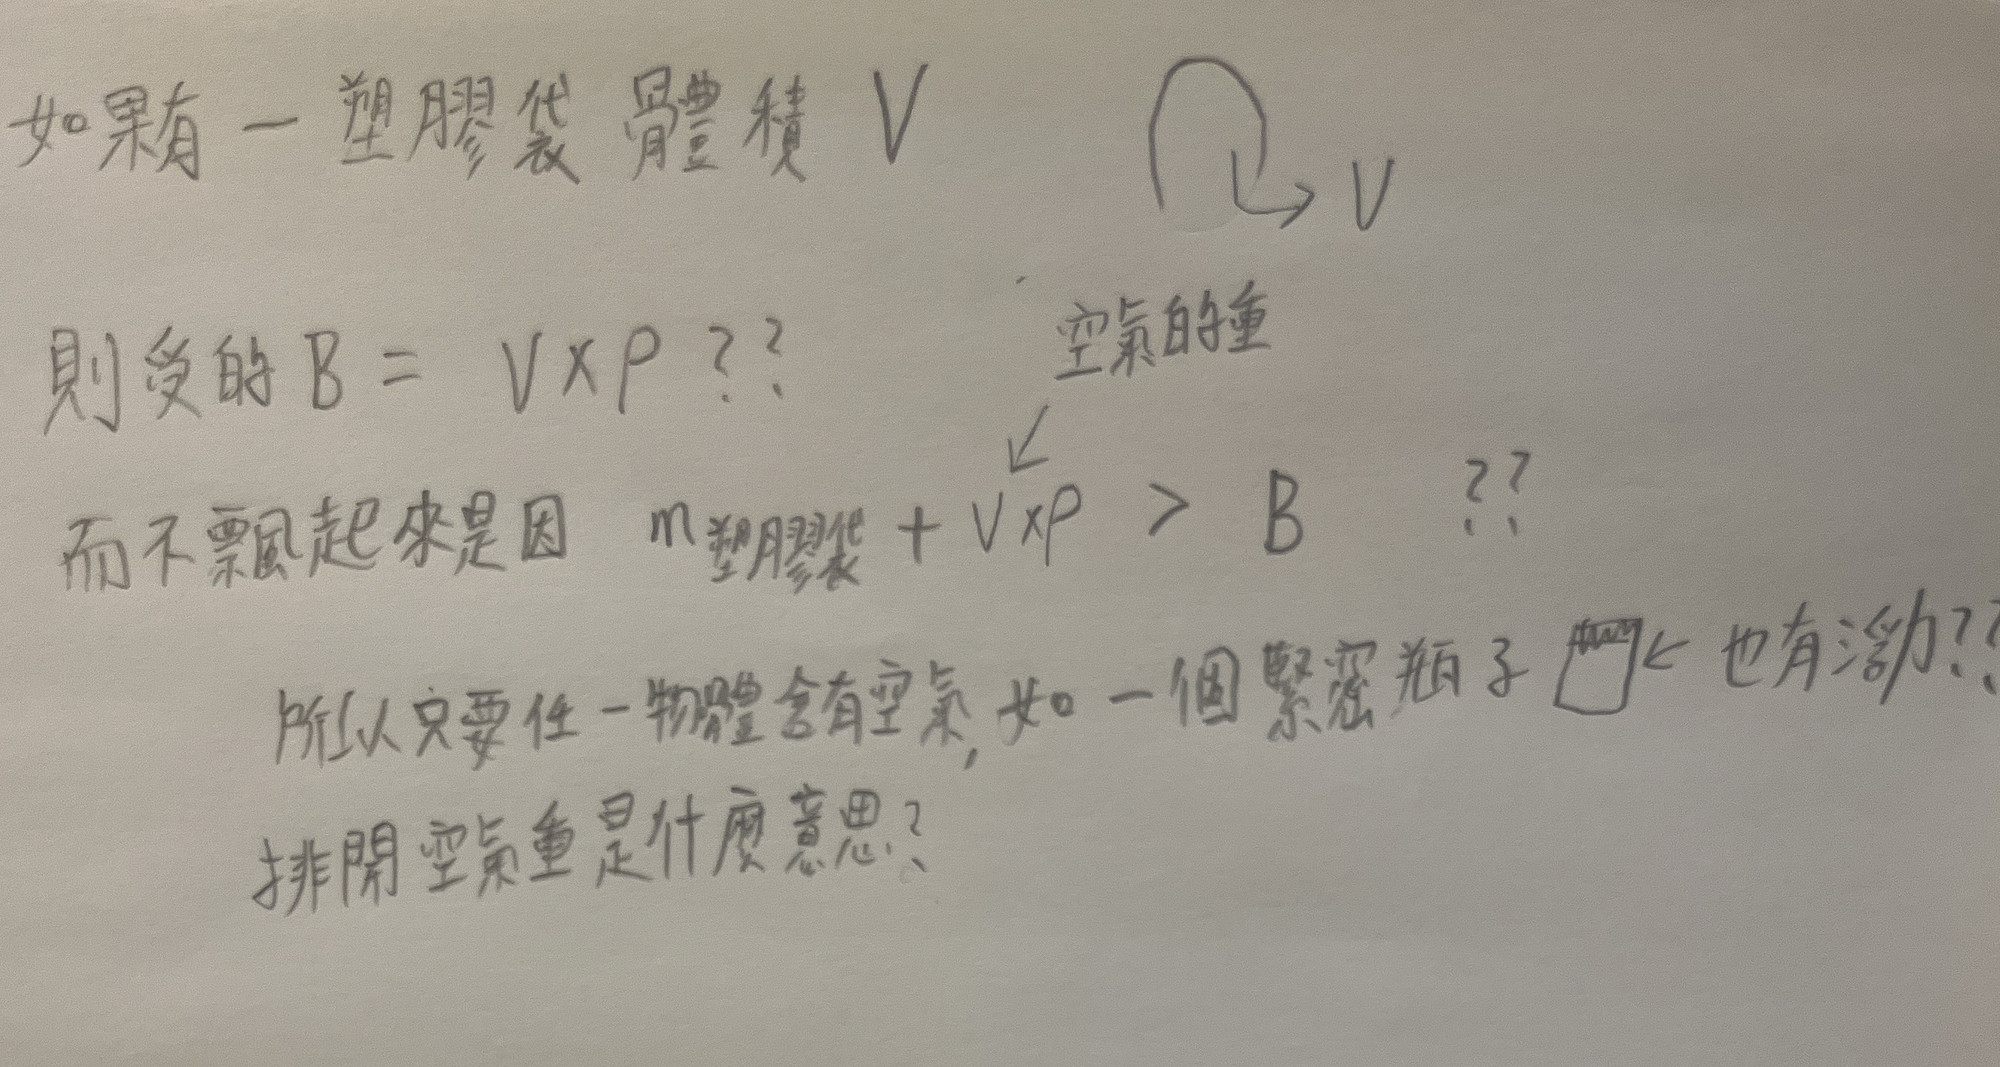 如果有一塑膠袋 體積 V
V
則受的 B = V×ρ ??
空氣的重
而不飄起來是因 m塑膠袋 + V×ρ > B ??
所以只要任一物體含有空氣, 如一個緊密瓶子 ← 也有浮力??
排開空氣重是什麼意思?